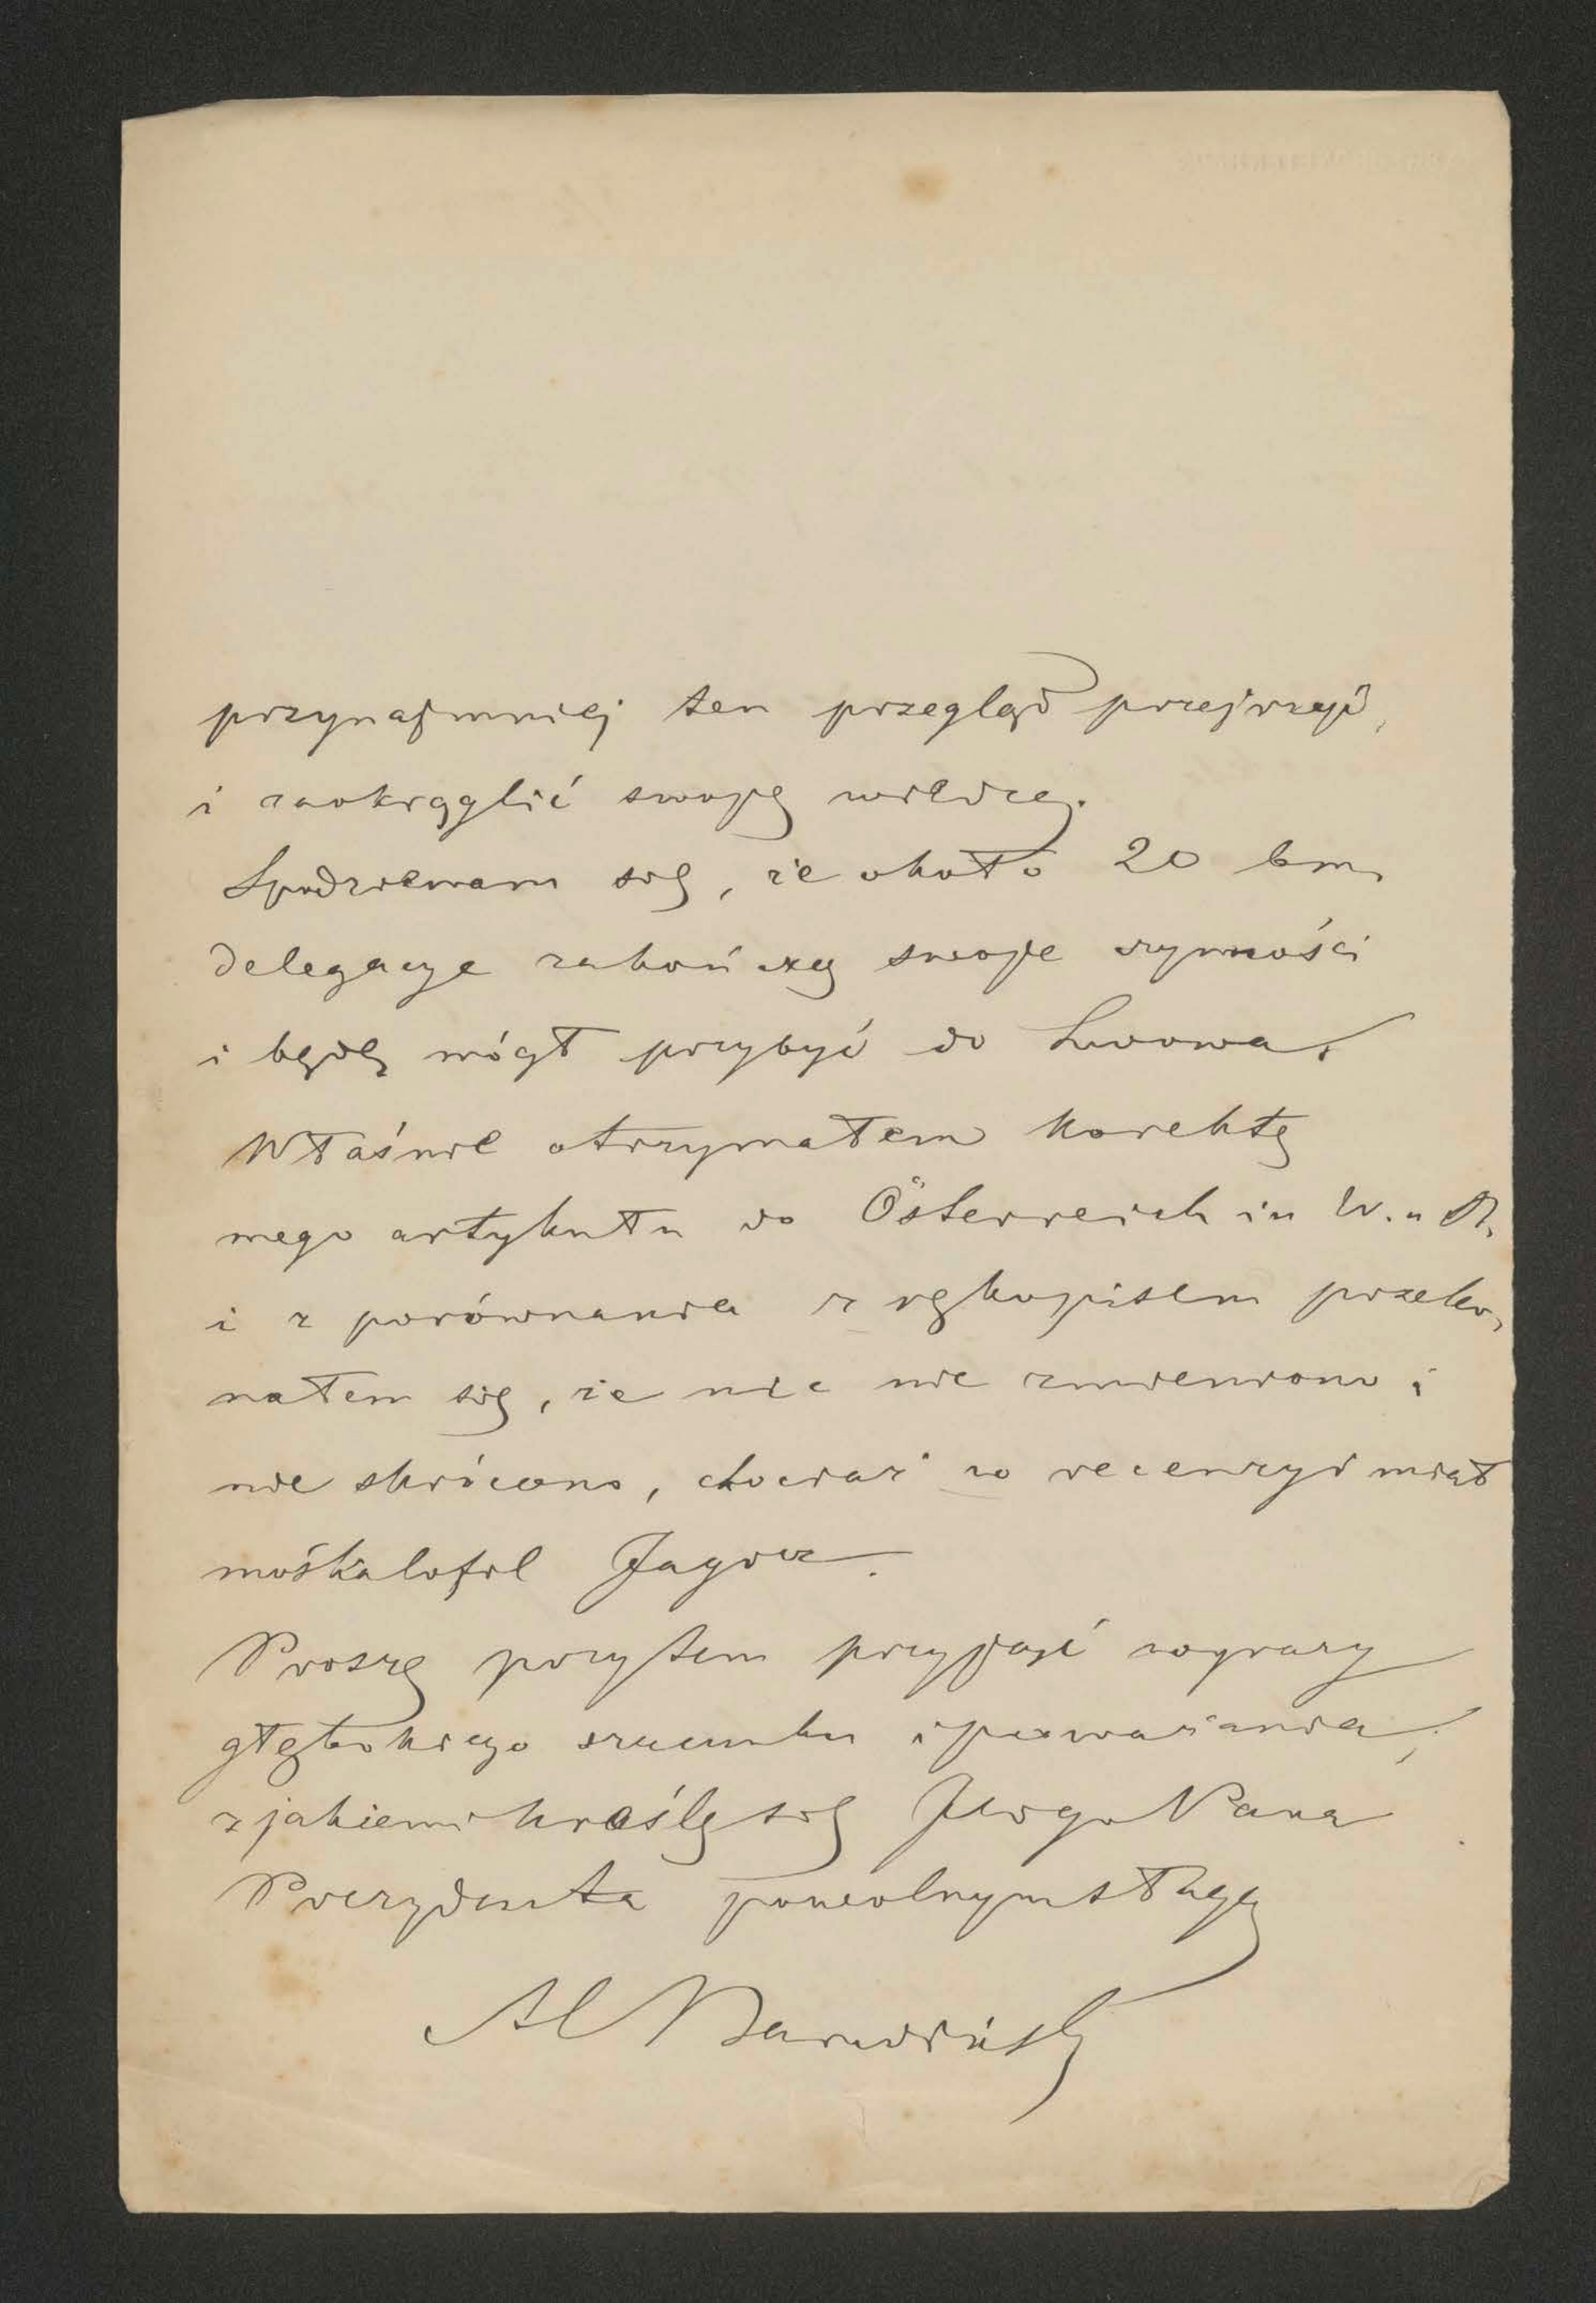 przynajmniej ten przegląd przejrzeć,
i zaokrąglić swoją wiedzę.
Spodziewam się, że około 20 bm.
delegacye zakończą swoje czynności
i będę mógł przybyć do Lwowa.
Właśnie otrzymałem korektę
mego artykułu do Österreich in W. u B.
i z porównania z rękopisem przeko-
nałem się, że nic nie zmieniono i
nie skrócono, chociaż w recenzyi miał
moskalofil Jagicz.
Proszę przytem przyjąć wyrazy
głębokiego szacunku i poważania,
z jakiemi kreślę się Jego Pana
Prezydenta powolnym sługą
Al Barwiński